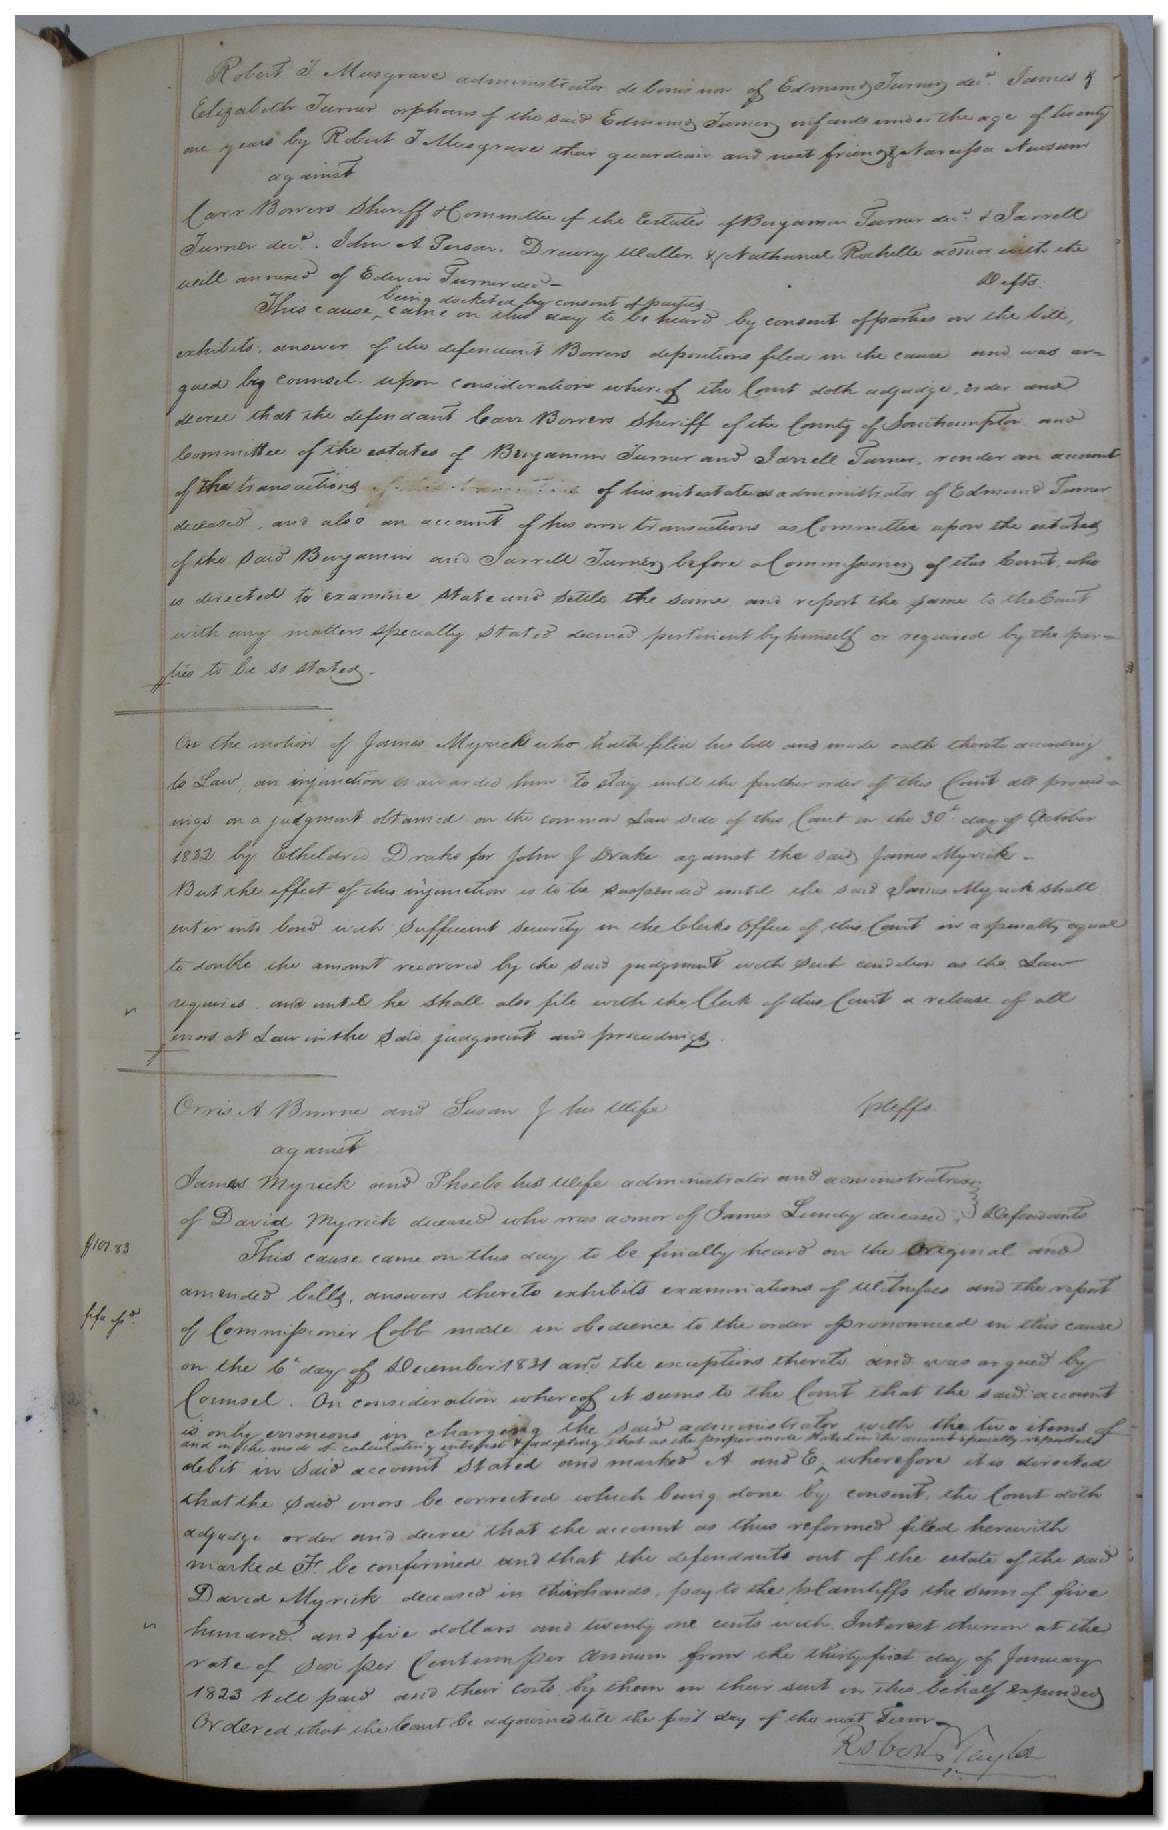 Robert T Musgrave administrator de bonis non of Edmund Turner decd. James &
Elizabeth Turner orphans of the said Edmund Turner infants under the age of twenty
one years by Robert T Musgrave their guardian and next friend & Narcissa Newsum
against
Carr Bowers Sheriff & Committee of the Estates of Benjamin Turner decd. & Jarrell
Turner decd. John A Person, Drewry Walter & Nathaniel Rochelle admor with the
will annexed of Edwin Turner decd — Defts.
being docketed by consent of parties
This cause, came on this day to be heard by consent of parties on the bill,
exhibits, answer of the defendant Bowers depositions filed in the cause and was ar-
gued by counsel. upon consideration whereof the Court doth adjudge, order and
decree that the defendant Carr Bowers Sheriff of the County of Southampton and
Committee of the estates of Benjamin Turner and Jarrell Turner, render an account
of the transactions of his intestate as administrator of Edmund Turner
deceased, and also an account of his own transactions as Committee upon the estates
of the said Benjamin and Jarrell Turner before a Commissioner of this Court, who
is directed to examine state and settle the same and report the same to the Court
with any matters specially stated deemed pertinent by himself or required by the par-
ties to be so stated.
On the motion of James Myrick who hath filed his bill and made oath thereto according
to Law, an injunction is awarded him to stay until the further order of this Court all proceed-
ings on a judgment obtained on the common Law side of this Court on the 30th day of October
1832 by Etheldred Drake for John J Drake against the said James Myrick -
But the effect of this injunction is to be suspended until the said James Myrick shall
enter into bond with sufficient security in the Clerks Office of this Court in a penalty equal
to double the amount recovered by the said judgment with such condition as the Law
requires and until he shall also file with the Clerk of this Court a release of all
errors at Law in the said judgment and proceedings.
Orris A Browne and Susan J his Wife pleffs
against
James Myrick and Phoebe his Wife administrator and administratrix
of David Myrick deceased who was admor of James Lundy deceased, Defendants
$107.83
This cause came on this day to be finally heard on the Original and
amended bills, answers thereto exhibits examinations of Witnesses and the report
fi fa
of Commissioner Cobb made in obedience to the order pronounced in this cause
on the 6th day of December 1831 and the exceptions thereto and was argued by
Counsel. On consideration whereof it seems to the Court that the said account
is only erroneous in charging the said administrator with the two items of
and in the mode of calculating interest & adopting that as the proper mode stated in the account specially reported
debit in said account stated and marked A and E wherefore it is directed
that the said errors be corrected which being done by consent, the Court doth
adjudge order and decree that the account as thus reformed filed herewith
marked F. be confirmed and that the defendants out of the estate of the said
David Myrick deceased in their hands, pay to the plaintiffs the sum of five
hundred and five dollars and twenty one cents with Interest thereon at the
rate of six per Centum per annum from the thirty first day of January
1823 till paid and their costs by them in their suit in this behalf expended
Ordered that the Court be adjourned till the first day of the next Term
Robert B Taylor